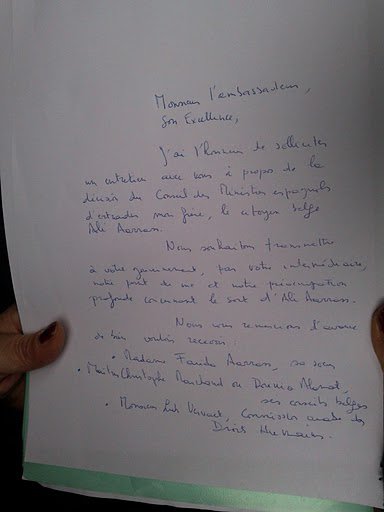 Monsieur l'ambassadeur,
Son Excellence,
J'ai l'honneur de solliciter
un entretien avec vous à propos de la
décision du Conseil des Ministres espagnols
d'extrader mon frère, le citoyen belge
Ali Aarrass.
Nous souhaitons transmettre
à votre gouvernement, par votre intermédiaire,
notre point de vue et notre préoccupation
profonde concernant le sort d'Ali Aarrass.
Nous vous remercions d'avance
de bien vouloir recevoir :
• Madame Farida Aarrass, sa soeur
• Maîtres Christophe Marchand ou Dounia Alamat,
ses conseils belges
• Monsieur Luk Vervaet, Commission arabe des
Droits Humains.